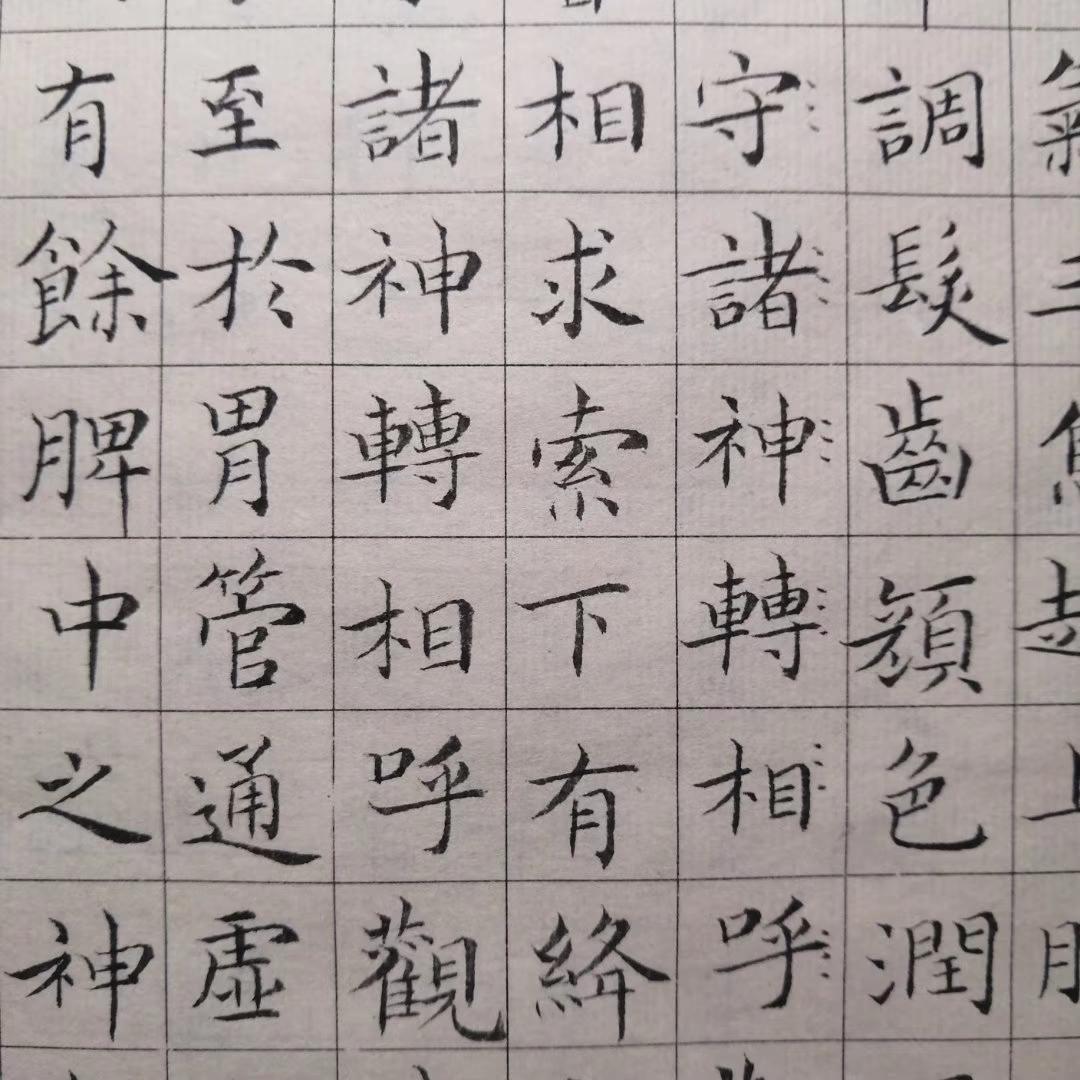 氣三
調髮齒顏色潤
守諸神轉相呼
相求索下有絳
諸神轉相呼觀
至於胃管通虛
有餘脾中之神